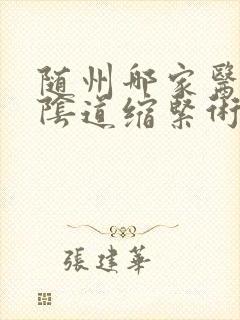 随州邮家醫
陰道缩緊術
張建華